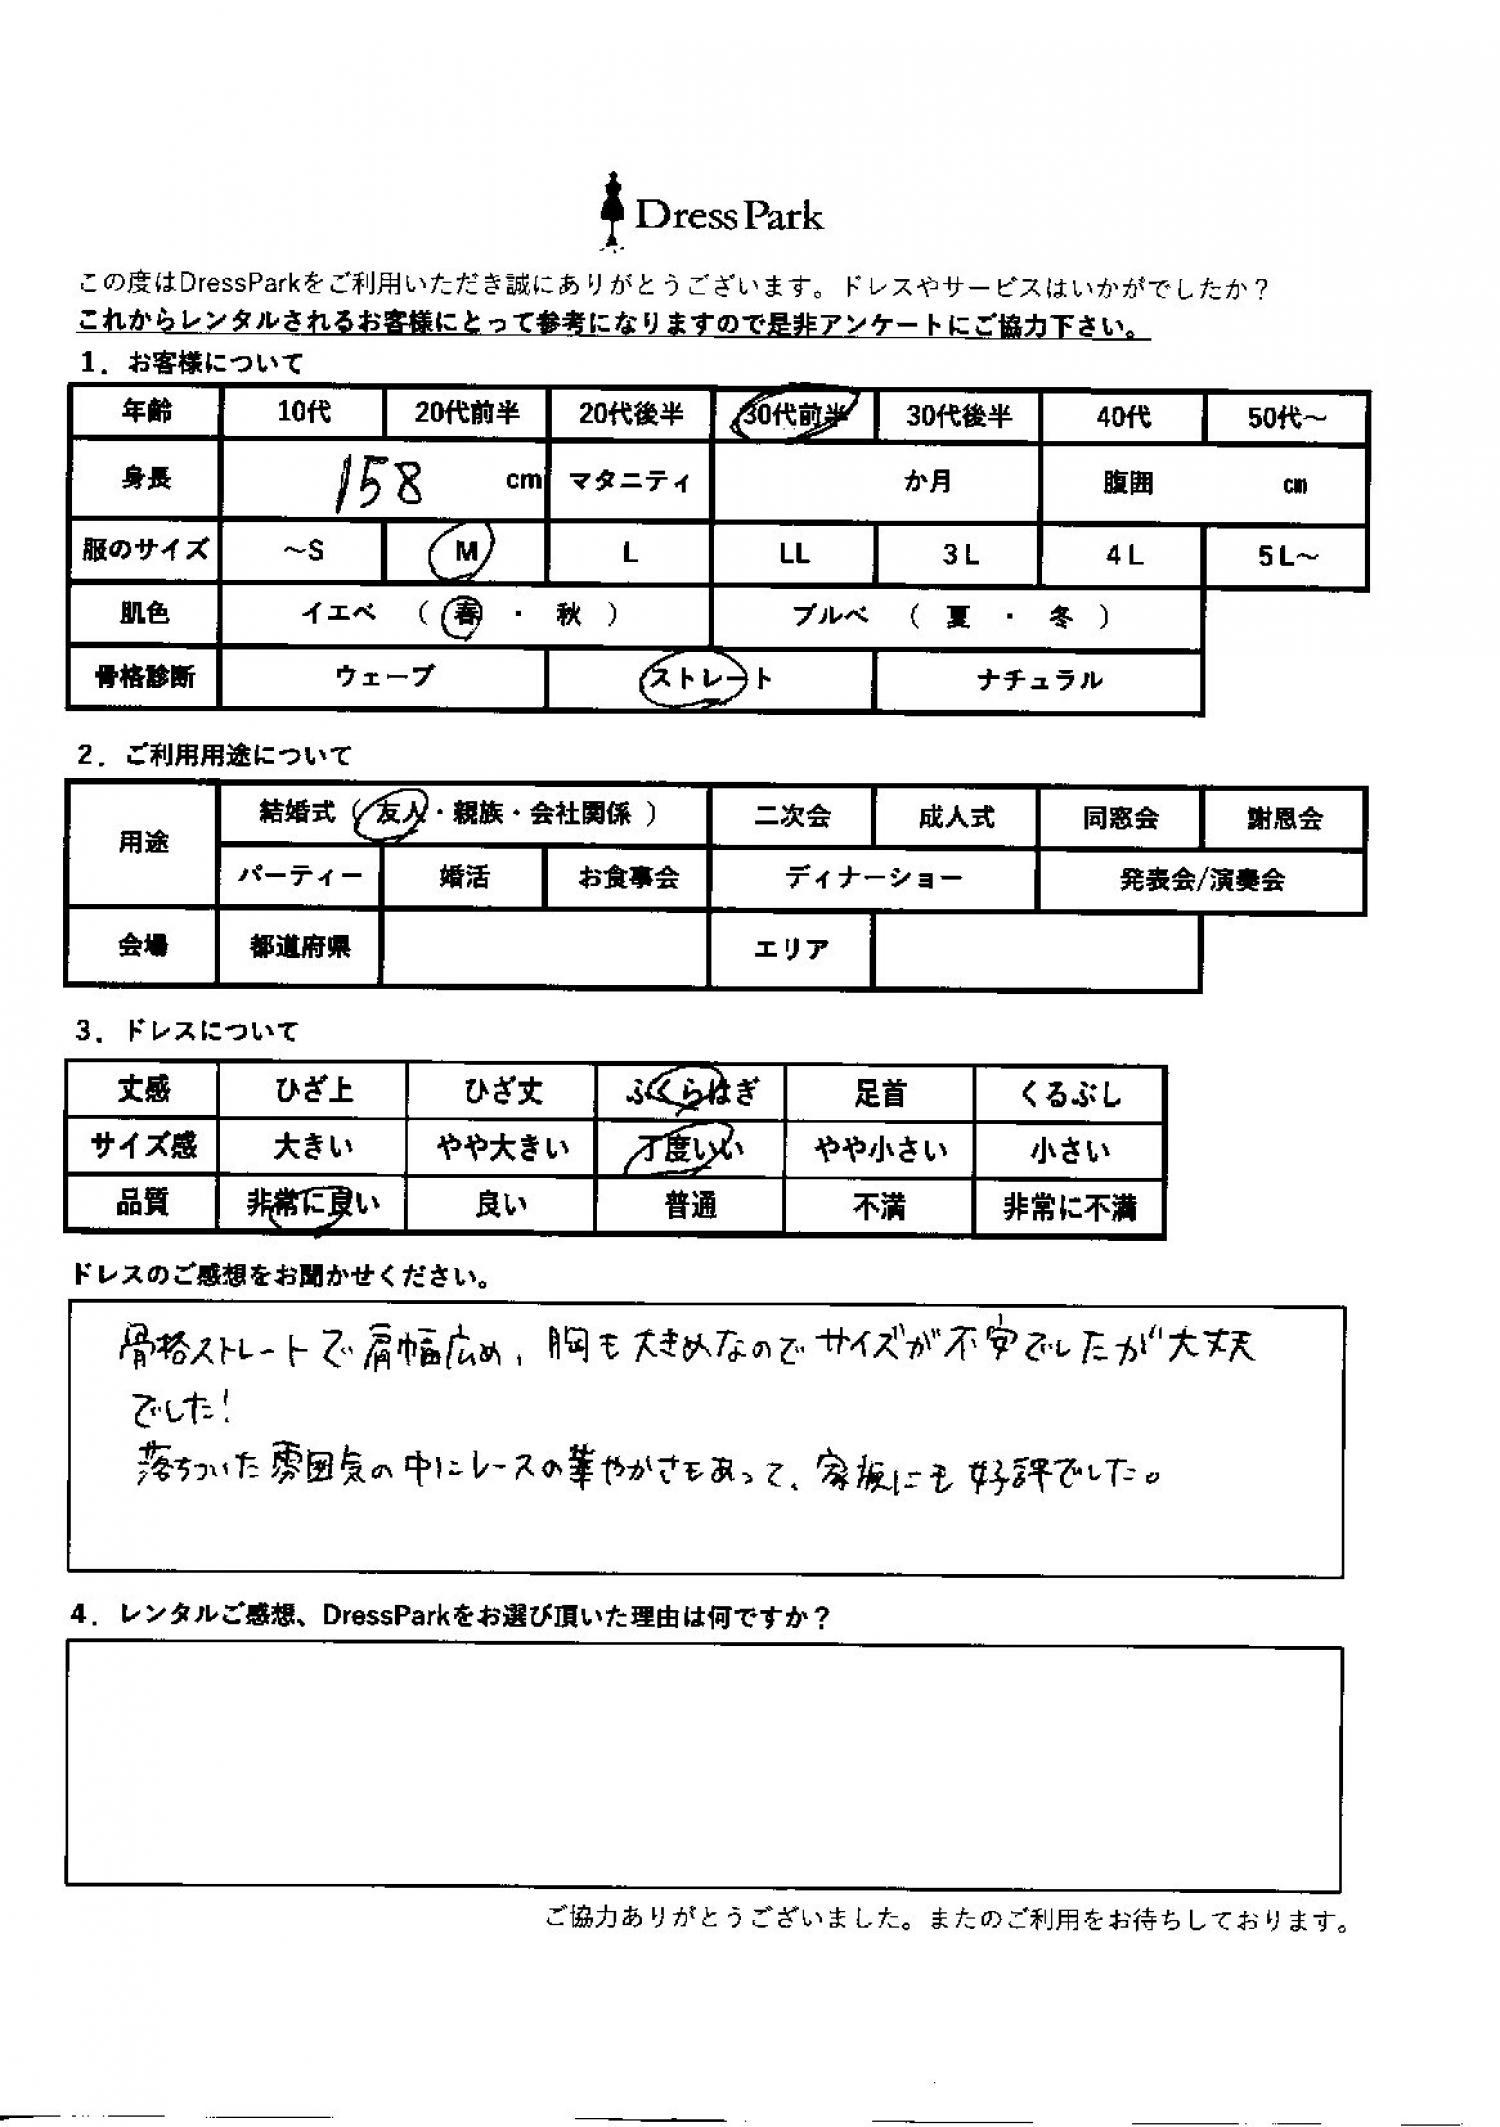 DressPark
この度はDressParkをご利用いただき誠にありがとうございます。ドレスやサービスはいかがでしたか？
これからレンタルされるお客様にとって参考になりますので是非アンケートにご協力下さい。
1．お客様について
年齢 10代 20代前半 20代後半 30代前半 30代後半 40代 50代～
身長 158 cm マタニティ か月 腹囲 cm
服のサイズ ～S M L LL 3L 4L 5L～
肌色 イエベ （ 春 ・ 秋 ） ブルベ （ 夏 ・ 冬 ）
骨格診断 ウェーブ ストレート ナチュラル
2．ご利用用途について
用途 結婚式（ 友人・親族・会社関係 ） 二次会 成人式 同窓会 謝恩会
パーティー 婚活 お食事会 ディナーショー 発表会/演奏会
会場 都道府県 エリア
3．ドレスについて
丈感 ひざ上 ひざ丈 ふくらはぎ 足首 くるぶし
サイズ感 大きい やや大きい 丁度いい やや小さい 小さい
品質 非常に良い 良い 普通 不満 非常に不満
ドレスのご感想をお聞かせください。
骨格ストレートで肩幅広め、胸も大きめなのでサイズが不安でしたが大丈夫
でした！
落ちついた雰囲気の中にレースの華やかさもあって、家族にも好評でした。
4．レンタルご感想、DressParkをお選び頂いた理由は何ですか？
ご協力ありがとうございました。またのご利用をお待ちしております。